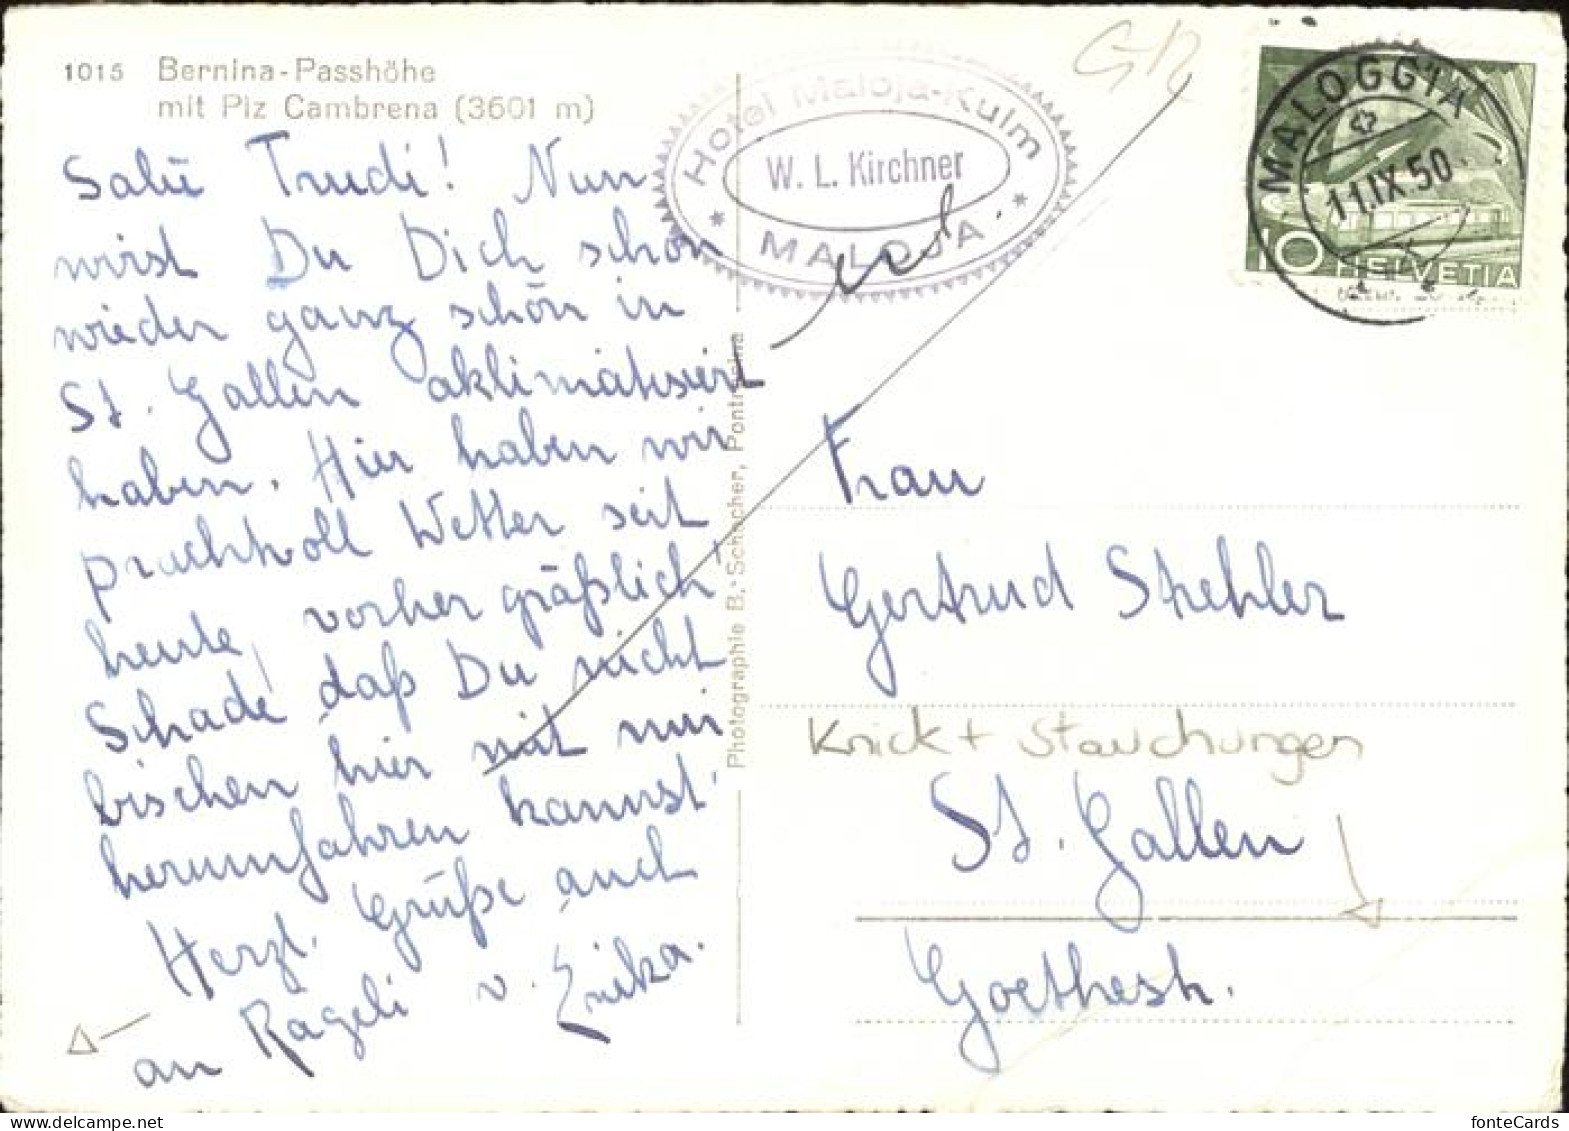 1015 Bernina-Passhöhe
mit Piz Cambrena (3601 m)
Salü Trudi! Nun
wirst Du Dich schon
wieder ganz schön in
St. Gallen aklimatisiert
haben. Hier haben wir
prachtvoll Wetter seit
heute, vorher gräßlich!
Schade daß Du nicht
bischen hier mit mir
herumfahren kannst.
Herzl. Grüße auch
an Rageli v. Erika.
Photographie B. Schocher, Pontresina
Hotel Maloja-Kulm
W. L. Kirchner
* MALOJA *
GR
MALOGGIA
11.IX.50
10 HELVETIA
Frau
Gertrud Stehler
Knick + Stauchungen
St. Gallen
Goethestr.
fonteCards